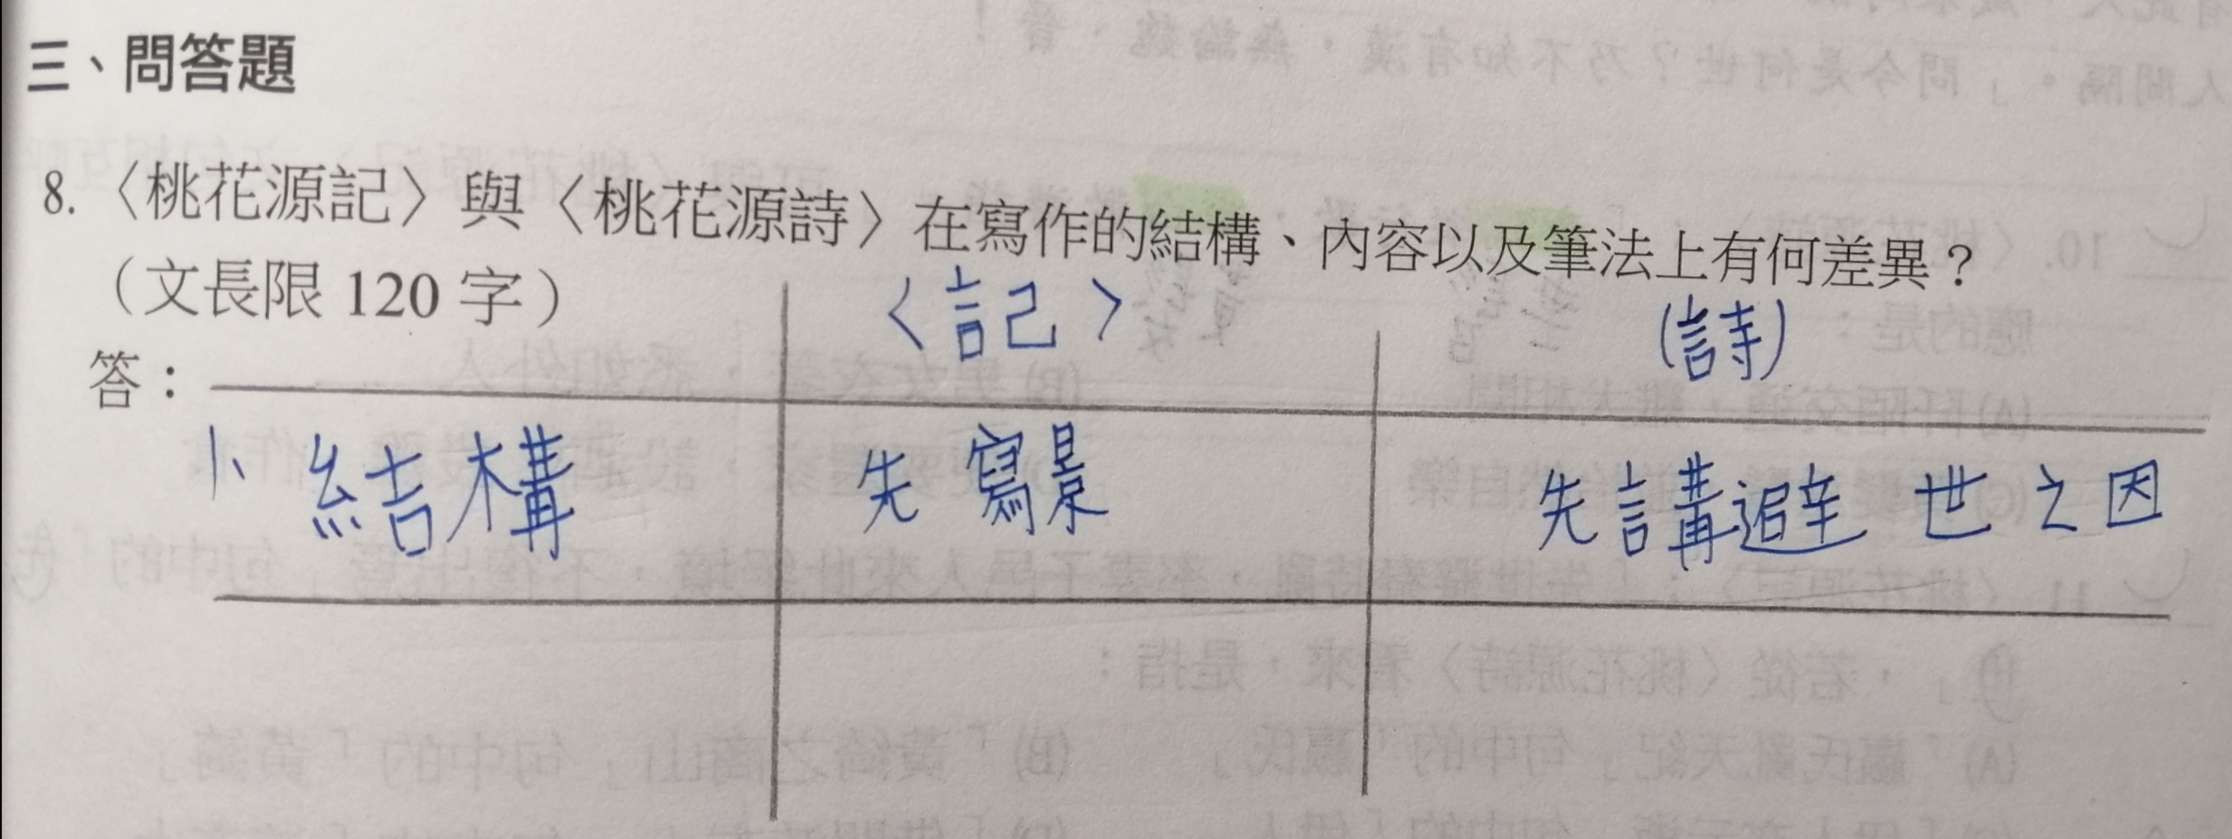 三、問答題
8.〈桃花源記〉與〈桃花源詩〉在寫作的結構、內容以及筆法上有何差異？
（文長限 120 字）
〈記〉 (詩)
答：
1、結構 先寫景 先講避世之因